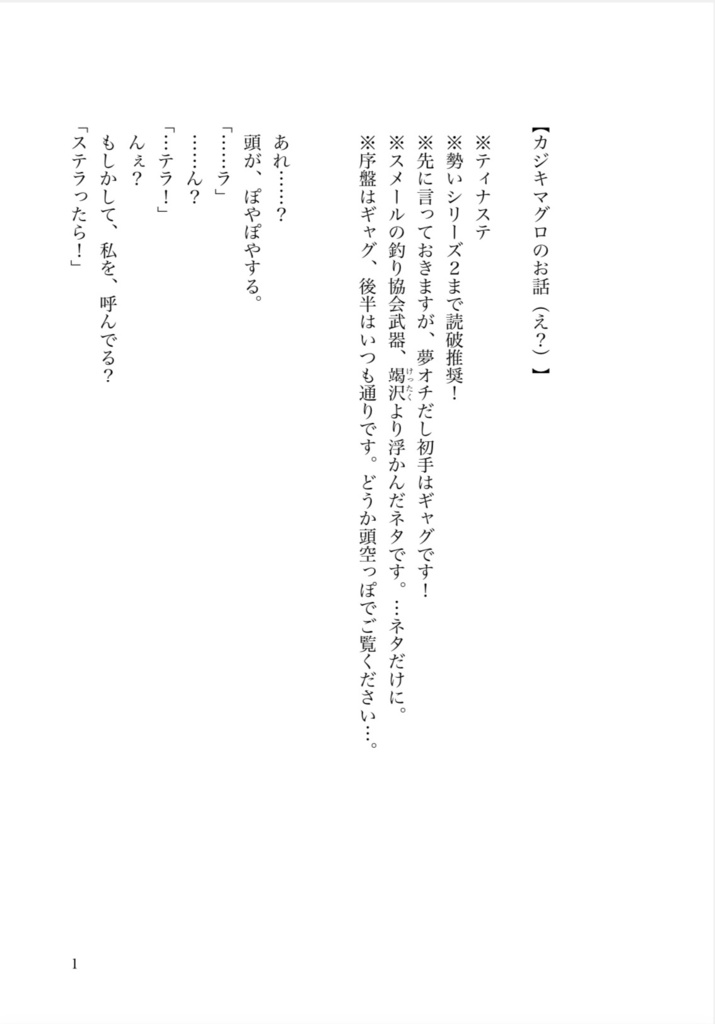 【カジキマグロのお話（え？）】
※ティナステ
※勢いシリーズ２まで読破推奨！
※先に言っておきますが、夢オチだし初手はギャグです！
※スメールの釣り協会武器、竭沢より浮かんだネタです。…ネタだけに。
けったく
※序盤はギャグ、後半はいつも通りです。どうか頭空っぽでご覧ください…。
あれ……？
頭が、ぽやぽやする。
「……ラ」
……ん？
「…テラ！」
んぇ？
もしかして、私を、呼んでる？
「ステラったら！」
1